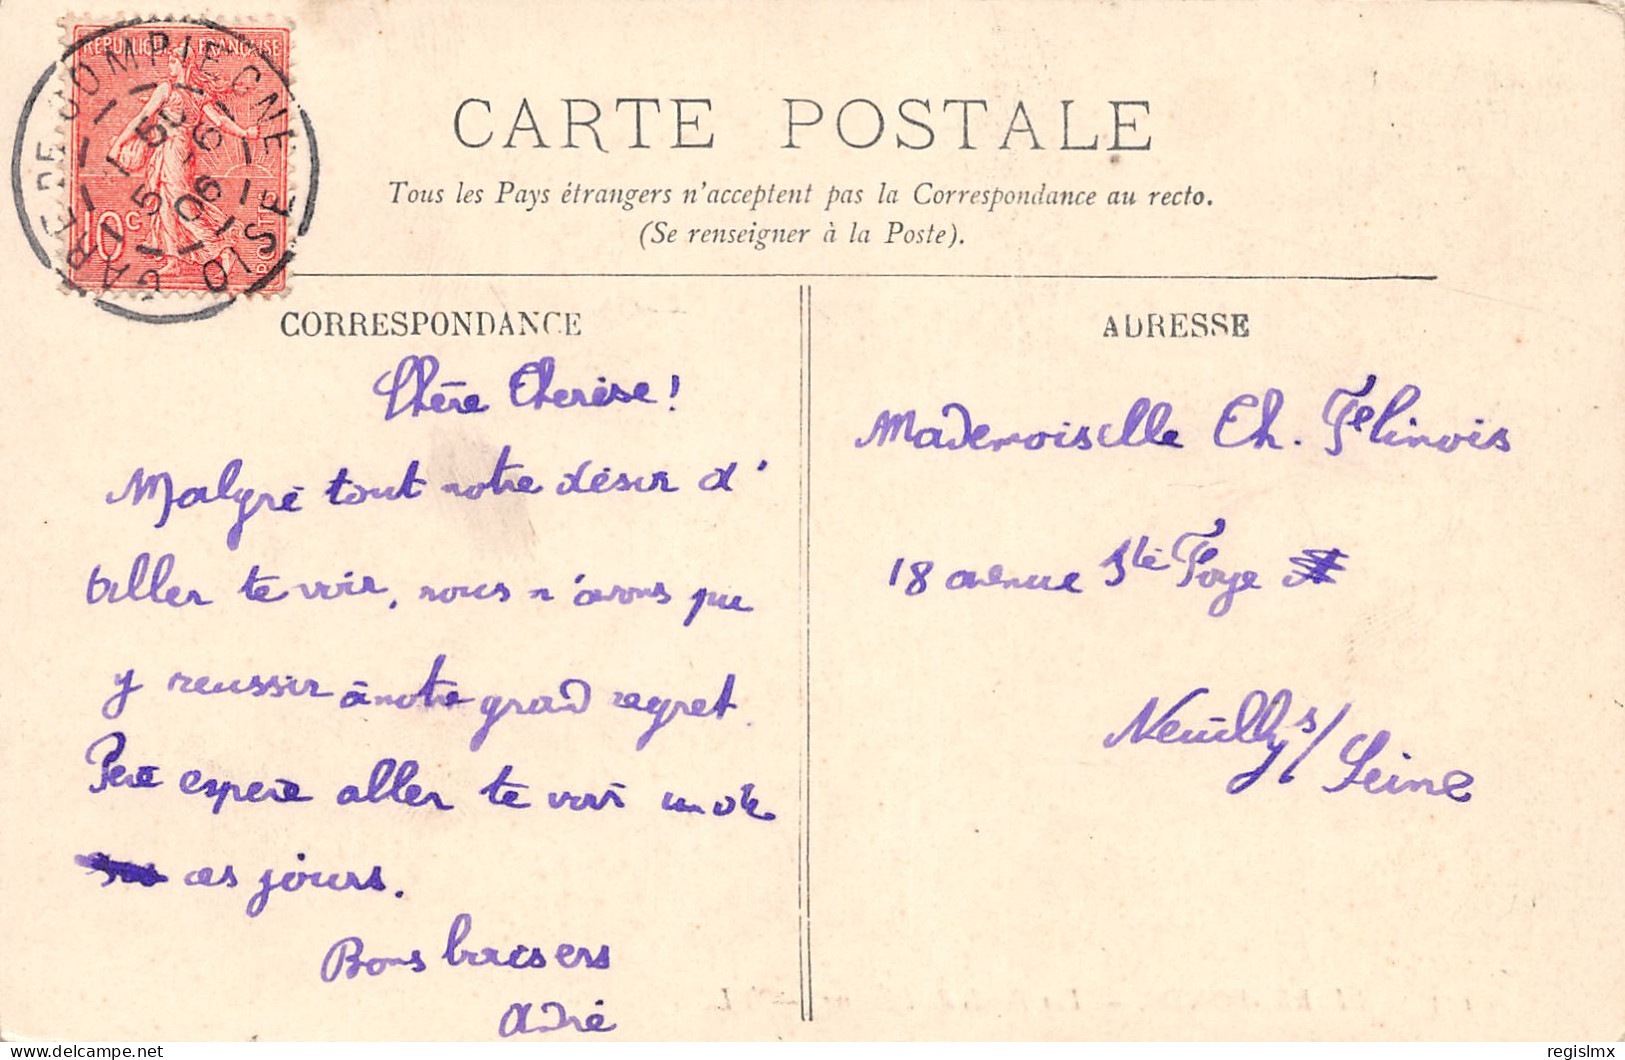 RÉPUBLIQUE FRANÇAISE
10c
POSTES
GARE DE COMPIEGNE
OISE
CARTE POSTALE
Tous les Pays étrangers n'acceptent pas la Correspondance au recto.
(Se renseigner à la Poste).
CORRESPONDANCE
Chère Therèse!
Malgré tout notre désir d'
aller te voir, nous n'avons pu
y reussir à notre grand regret.
Père espère aller te voir un de
ces jours.
Bons baisers
André
ADRESSE
Mademoiselle Th. Felinois
18 avenue Ste Foye
Neuilly s/ Seine
delcampe.net
regislmx